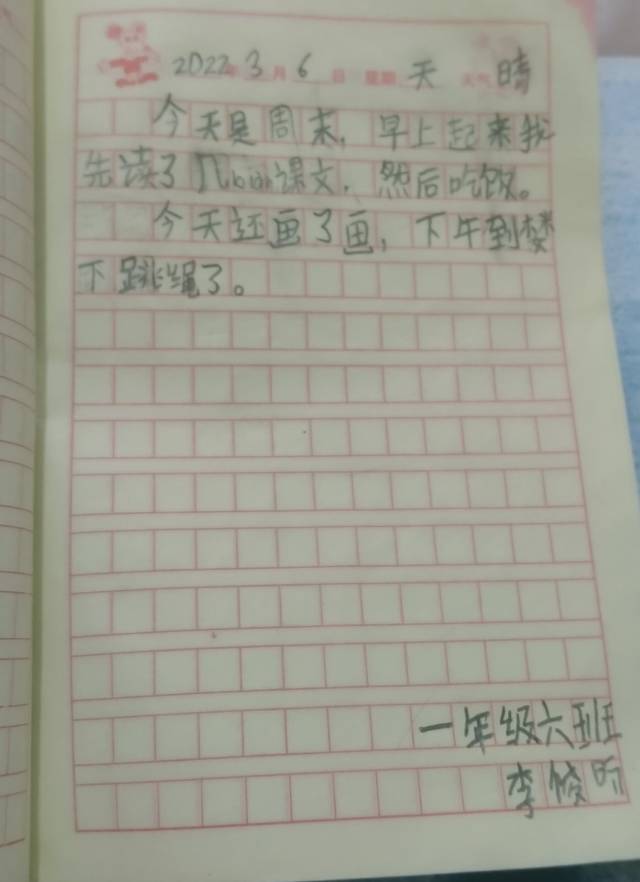 2022年3月6日 星期天 天气晴
今天是周末，早上起来我
先读了几bian课文，然后吃饭。
今天还画了画，下午到楼
下跳绳了。
一年级六班
李